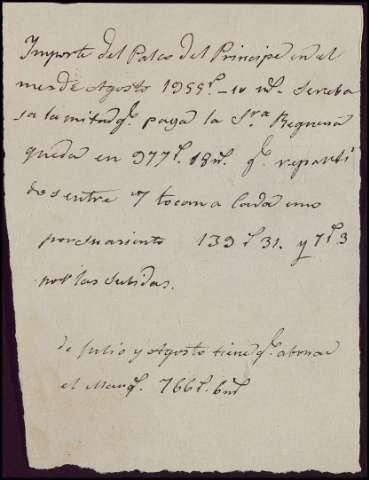 Importe del Palco del Principe en el
mes de Agosto 1955 r.s - 10 m.s Se reba
sa la mitad q.e paga la S.ra Requena
queda en 977 r.s 18 m.s q.e reparti
dos entre 7 tocan a cada uno
por su asiento 139 r.s 31. y 7 r.s 3
por las subidas.
de Julio y Agosto tiene q.e abonar
el Marq.s 766 r.s 6 m.s